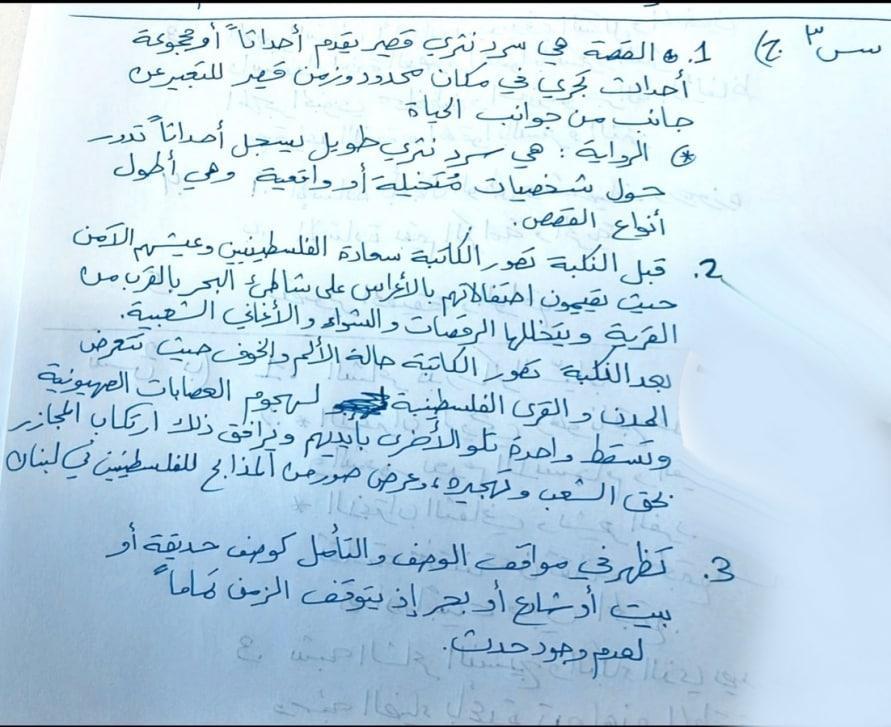 سـ٣ ج) 1. * القصة هي سرد نثري قصير يقدم أحداثاً أو مجموعة
أحداث تجري في مكان محدود وزمن قصير للتعبير عن
جانب من جوانب الحياة
* الرواية : هي سرد نثري طويل يسجل أحداثاً تدور
حول شخصيات مُتخيلة أو واقعية وهي أطول
أنواع القصص.
2. قبل النكبة تصور الكاتبة سعادة الفلسطينيين وعيشهم الآمن
حيث يقيمون احتفالاتهم بالأعراس على شاطئ البحر بالقرب من
القرية ويتخللها الرقصات والشواء والأغاني الشعبية.
بعد النكبة تصور الكاتبة حالة الألم والخوف حيث تتعرض
المدن والقرى الفلسطينية لهجوم العصابات الصهيونية
وتسقط واحدة تلو الأخرى بأيديهم ويرافق ذلك ارتكاب المجازر
بحق الشعب وتهجيره، وعرض صور من المذابح للفلسطينيين في لبنان
3. تظهر في مواقف الوصف والتأمل كوصف حديقة أو
بيت أو شارع أو بحر إذ يتوقف الزمن تماماً
لعدم وجود حدث.